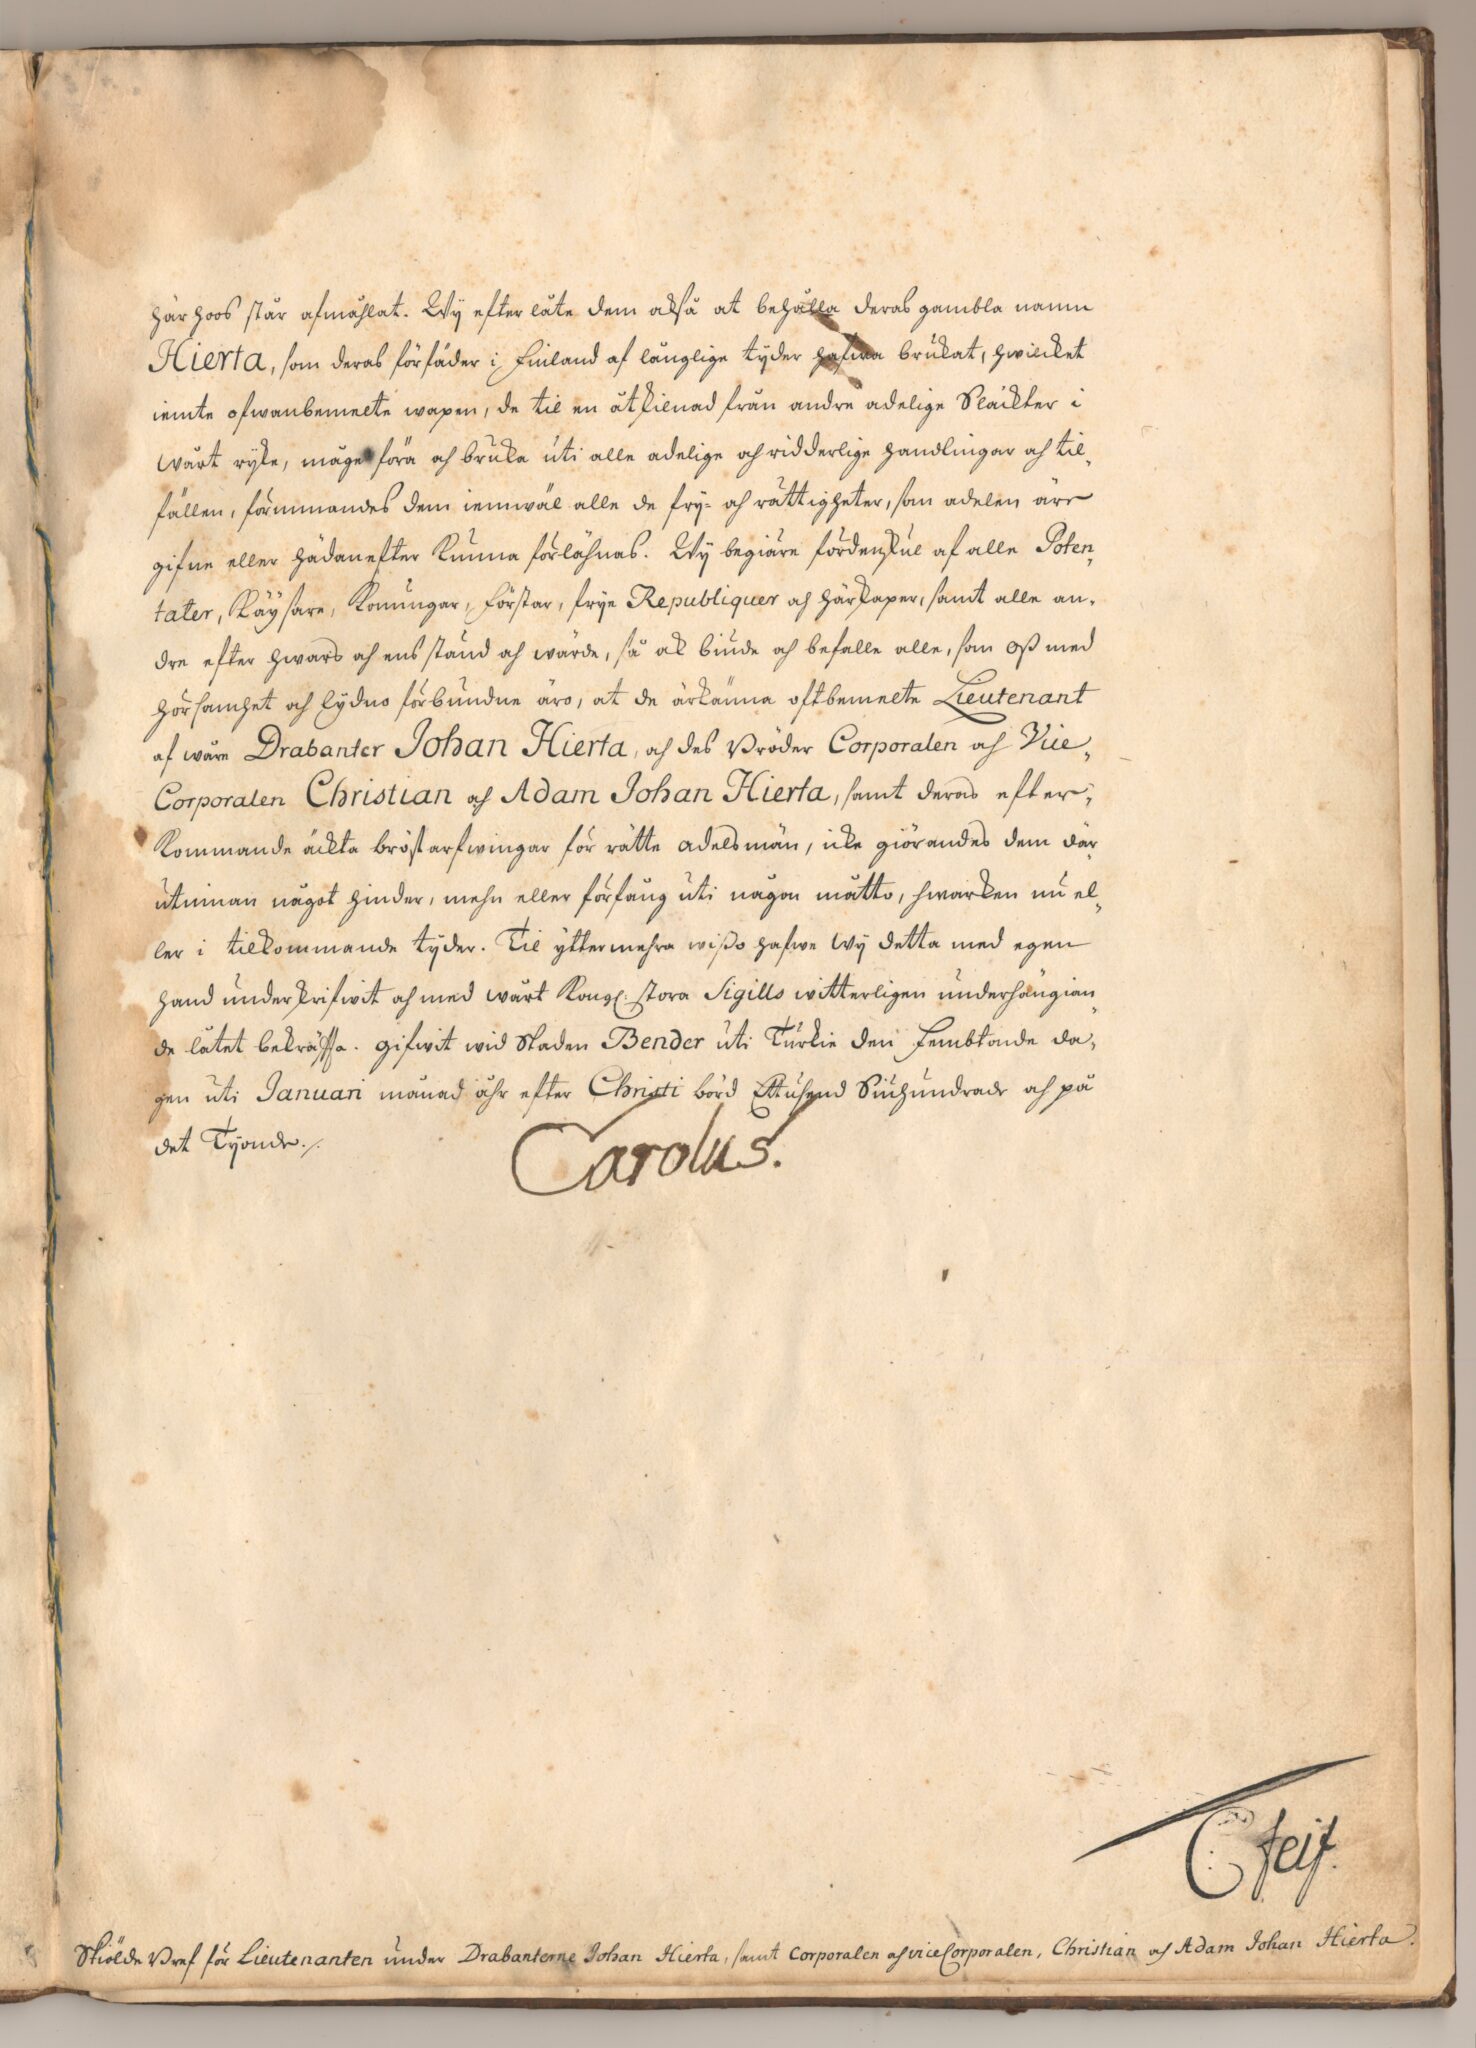 här hoos står afmåhlat. Wij efterlåte dem akså at behålla deras gambla namn
Hierta, som deras förfäder i Finland af långlige tyder hafwa brukat, hwilcket
iemte ofwanbemelte wapen, de til en åtskilnad från andre adelige Släckter i
wårt ryke, måge föra och bruka uti alle adelige och ridderlige handlingar och til„
fällen, förunnandes dem iemwäl alle de fry= och rättigheter, som adelen äre
gifne eller hädanefter kunna förlähnas. Wij begiäre fördenskul af alle Poten„
tater, Käysare, Konungar, Förstar, frye Republiquer och härskaper, samt alle an„
dre efter hwars och ens stånd och wärde, så ok biude och befalle alle, som oß med
hörsamhet och lydno förbundne äro, at de ärkänna oftbemelte Lieutenant
af wåre Drabanter Johan Hierta, och des Bröder Corporalen och Vice„
Corporalen Christian och Adam Johan Hierta, samt deras efter„
kommande äckta bröstarfwingar för rätte adelsmän, icke giörandes dem där
utinnan något hinder, mehn eller förfång uti någon måtto, hwarken nu el„
ler i tilkommande tyder. Til yttermehra wißo hafwe Wij detta med egen
hand underskrifwit och med wårt Kongl: stora Sigills witterligen underhängian„
de låtet bekräffta. gifwit wid Staden Bender uti Türkie den Fembtonde da„
gen uti Januari månad åhr efter Christi börd Ettusend Siuhundrade och på
det Tyonde./.
Carolus.
C feif.
Skiölde Bref för Lieutenanten under Drabanterne Johan Hierta, samt Corporalen och viceCorporalen, Christian och Adam Johan Hierta.